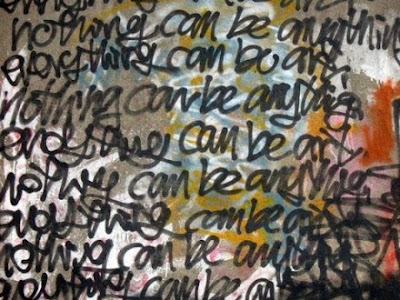 everything
nothing can be anything
everything can be art
nothing can be anything
everything can be art
nothing can be anything
everything can be art
nothing can be anything
everything can be